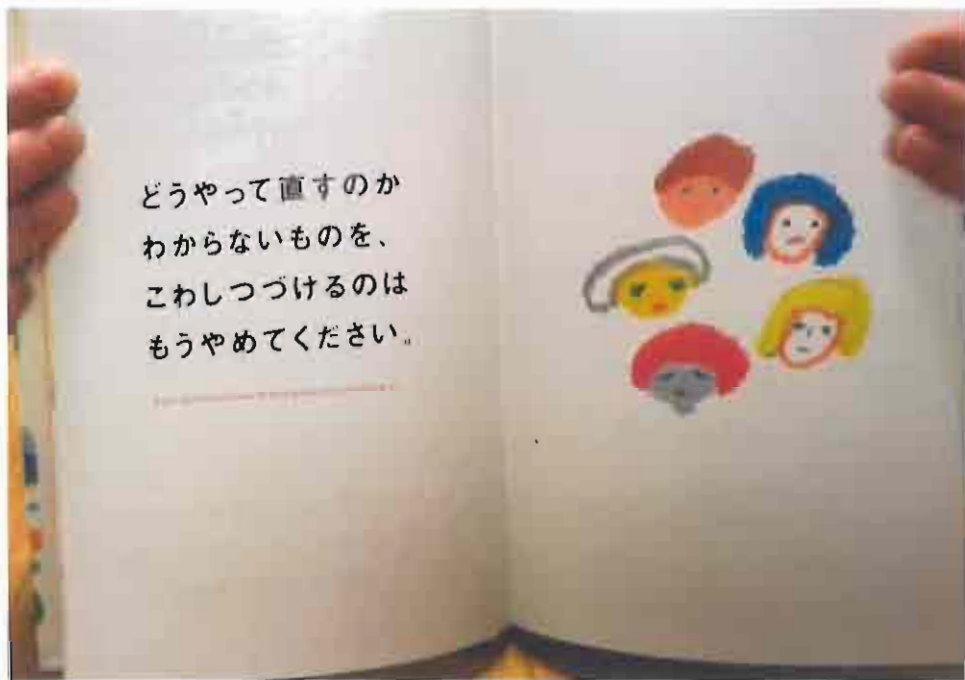 どうやって直すのか
わからないものを、
こわしつづけるのは
もうやめてください。